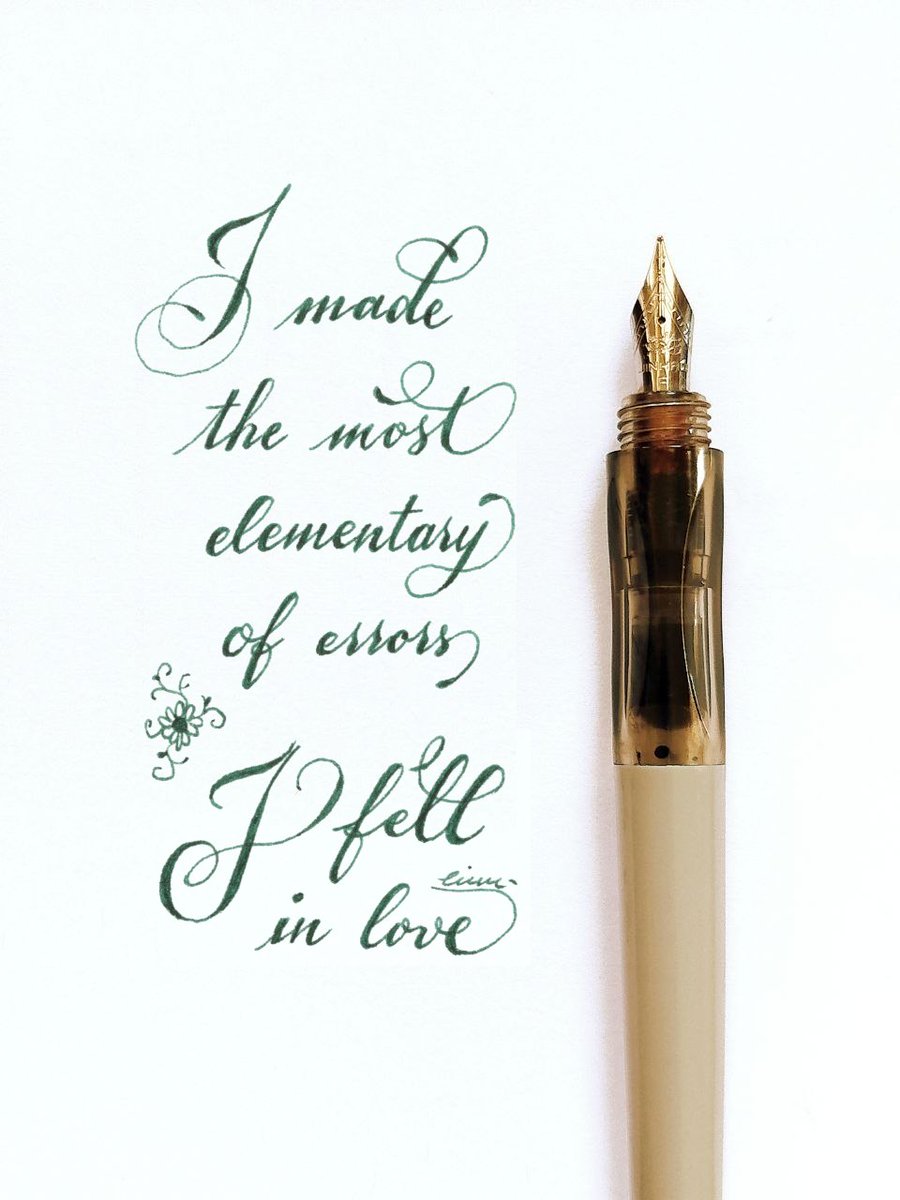 I made
the most
elementary
of errors
I fell
in love